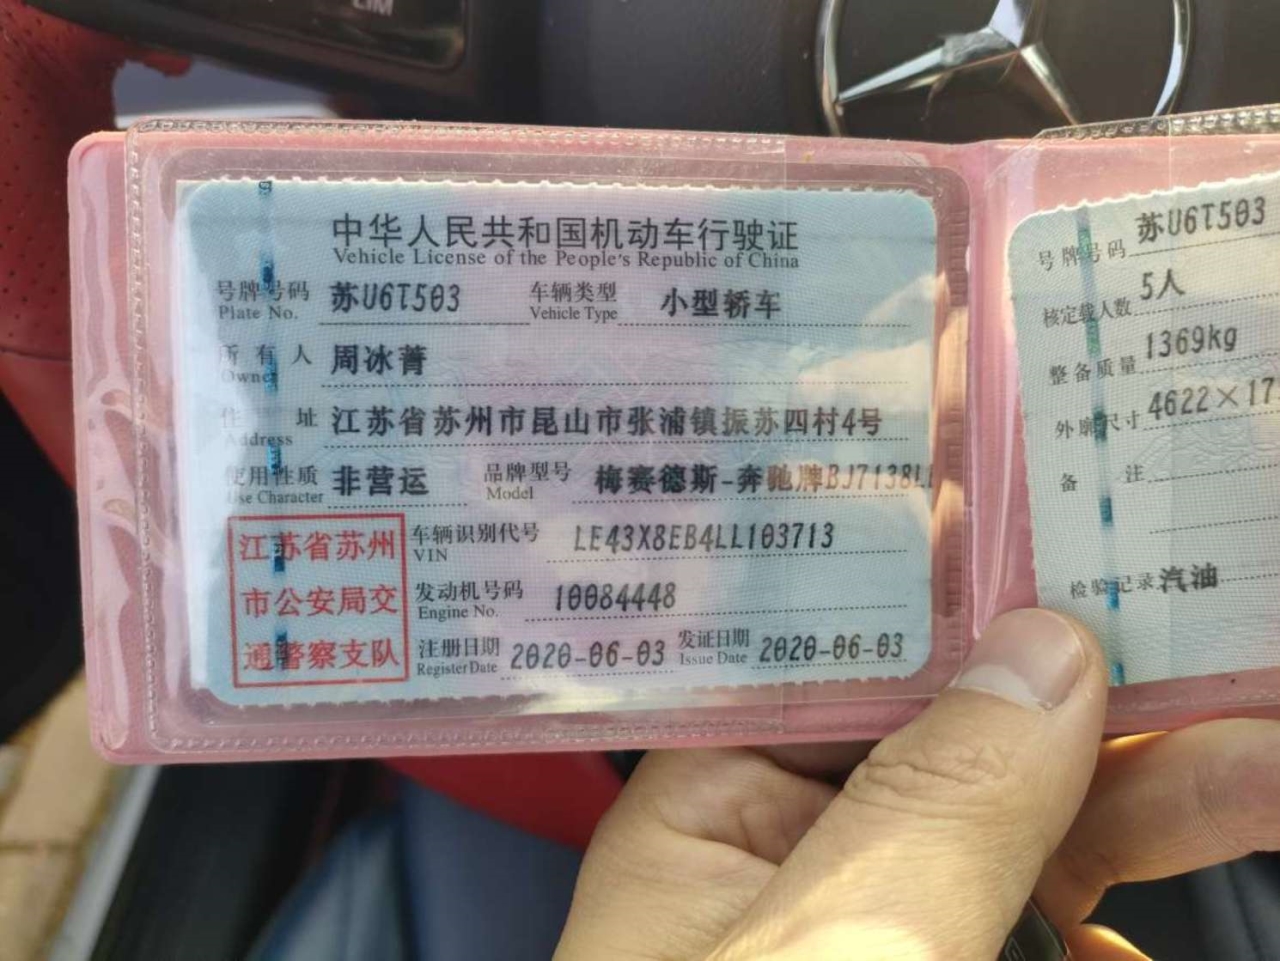 LIM
中华人民共和国机动车行驶证
Vehicle License of the People's Republic of China
号牌号码 苏U6T503 车辆类型 小型轿车
Plate No. Vehicle Type
所有人 周冰菁
Owner
住址 江苏省苏州市昆山市张浦镇振苏四村4号
Address
使用性质 非营运 品牌型号 梅赛德斯-奔驰牌BJ7138L
Use Character Model
江苏省苏州
市公安局交
通警察支队
车辆识别代号 LE43X8EB4LL103713
VIN
发动机号码 10084448
Engine No.
注册日期 2020-06-03 发证日期 2020-06-03
Register Date Issue Date
号牌号码 苏U6T503
核定载人数 5人
整备质量 1369kg
外廓尺寸 4622×17
备注
检验记录 汽油